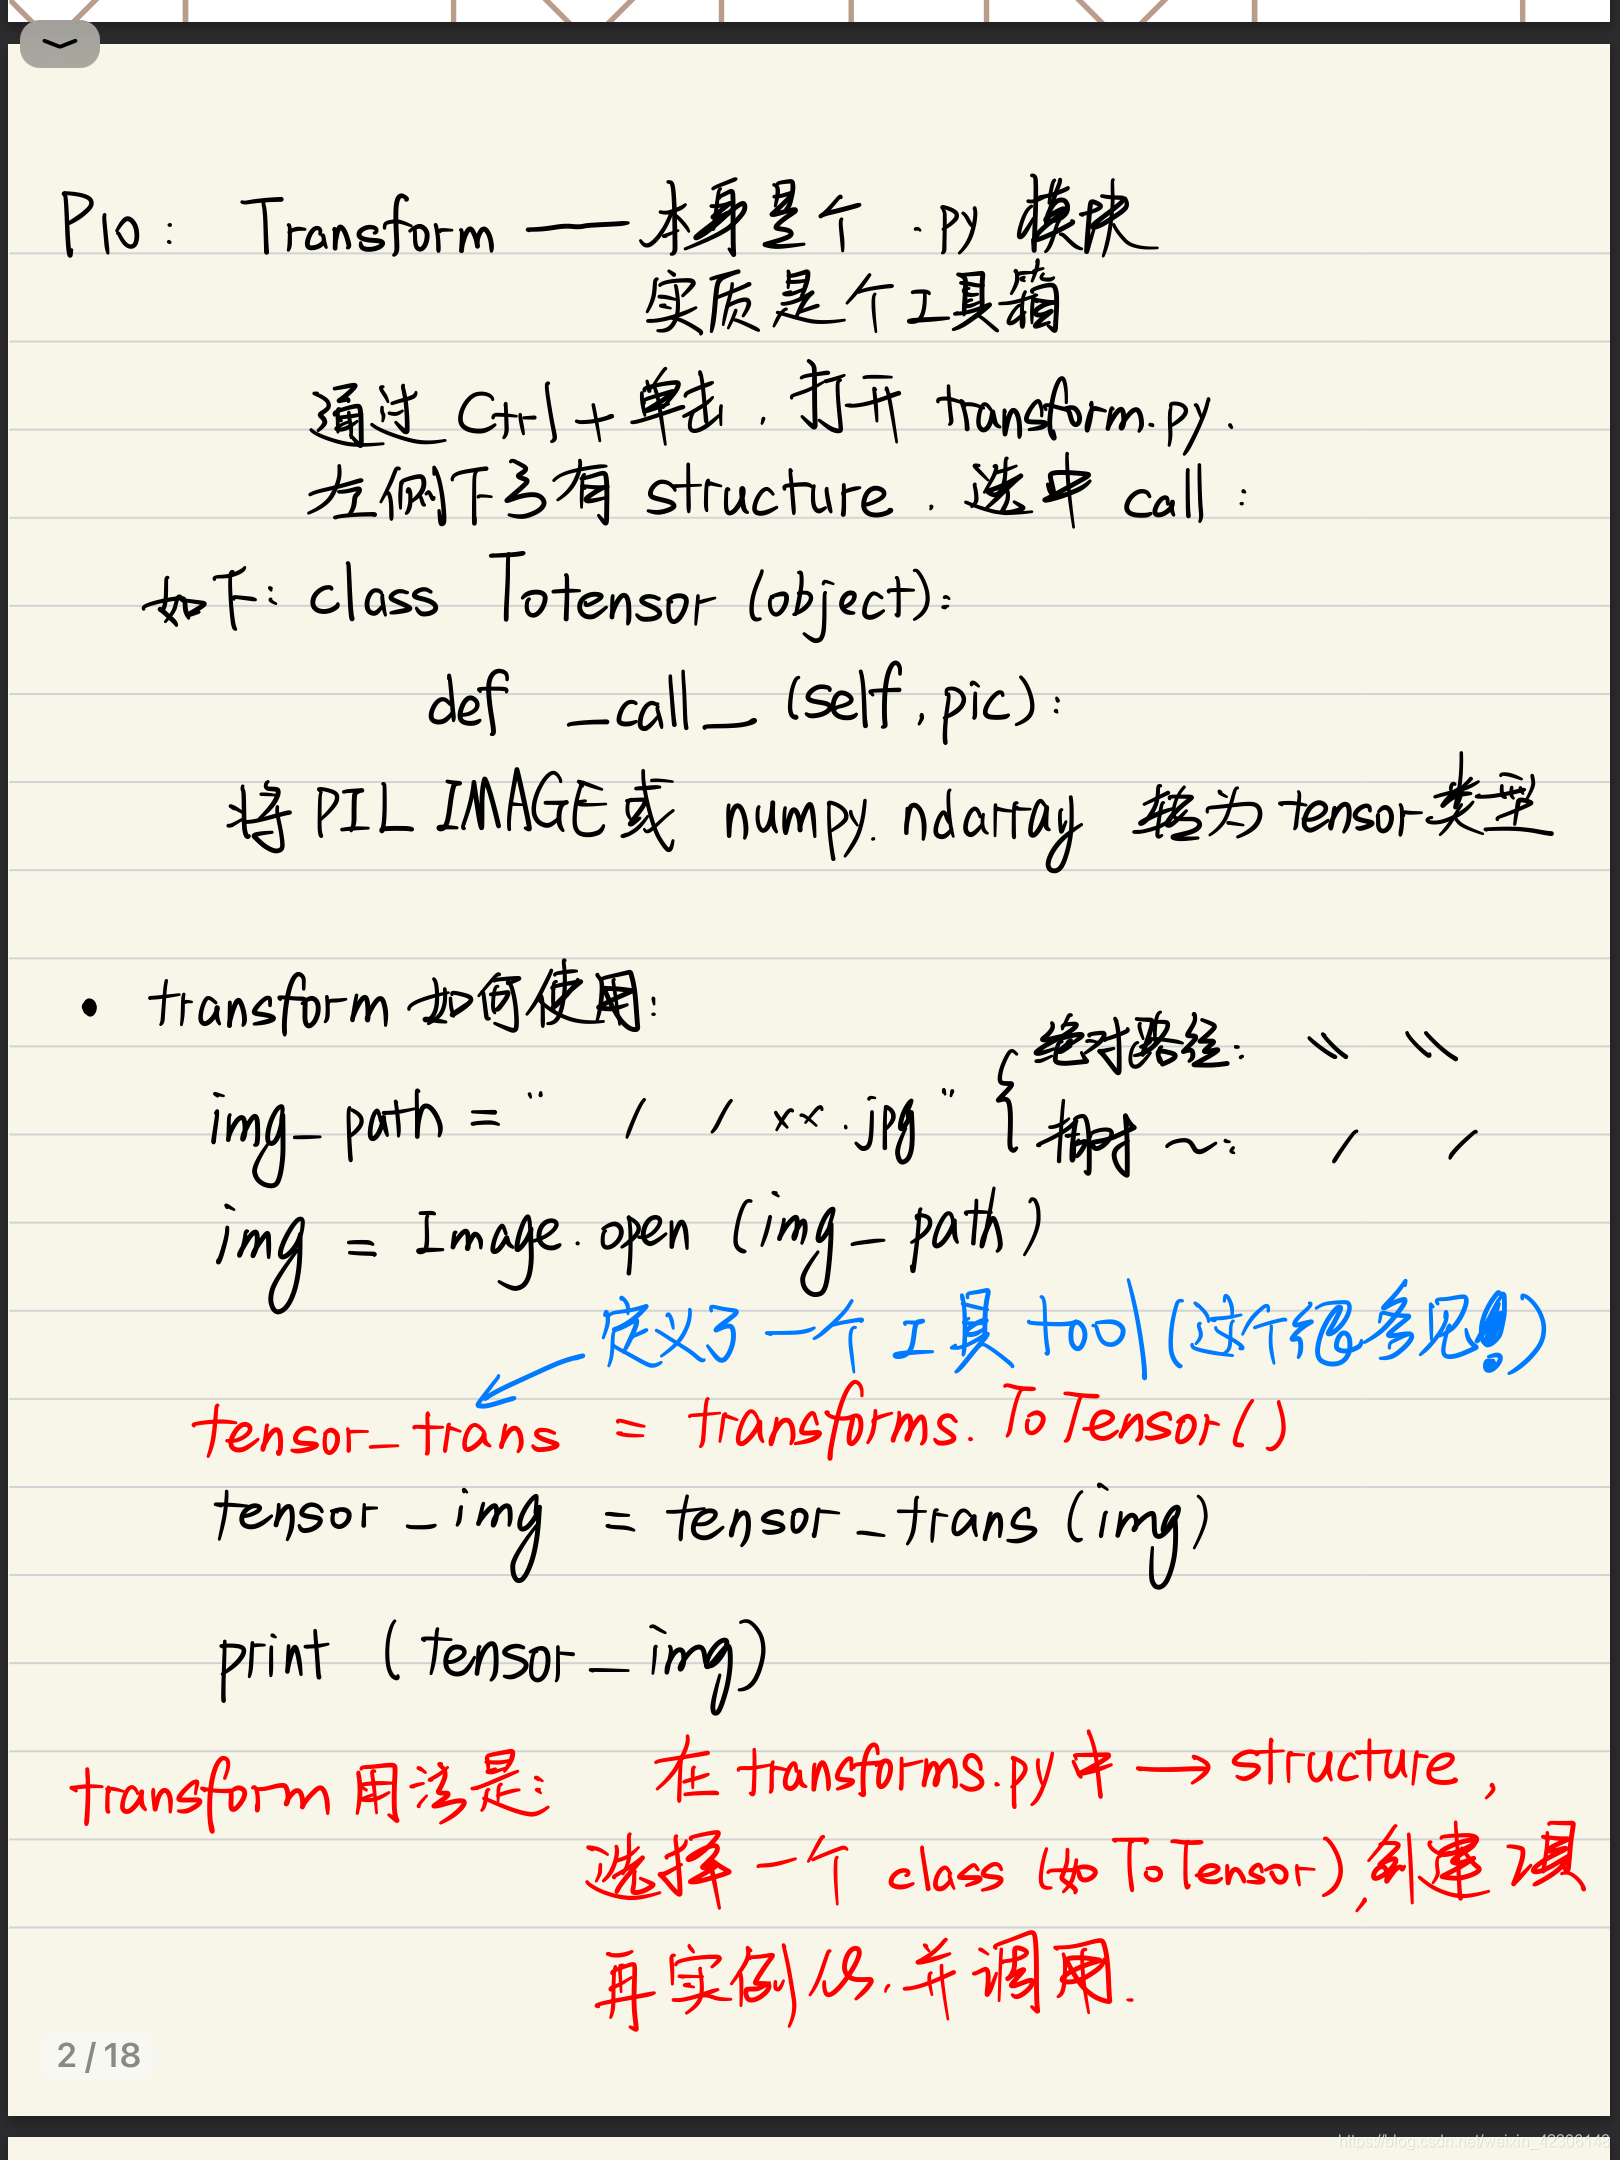 P10: Transform —— 本身是个 .py 模块
实质是个工具箱
通过 Ctrl + 单击, 打开 transform.py.
左侧下多有 structure. 选中 call:
如下: class Totensor (object):
def _call_ (self, pic):
将 PIL IMAGE 或 numpy. ndarray 转为 tensor 类型
• transform 如何使用:
绝对路径: \\ \\
img_path = " / / xx.jpg" { 相对 ~: / /
img = Image.open (img_path)
定义了一个工具 tool (这个很多见!)
tensor_trans = transforms. ToTensor()
tensor_img = tensor_trans (img)
print (tensor_img)
transform 用法是: 在 transforms.py 中 → structure,
选择一个 class (如 ToTensor), 创建工具
再实例化, 并调用.
2 / 18